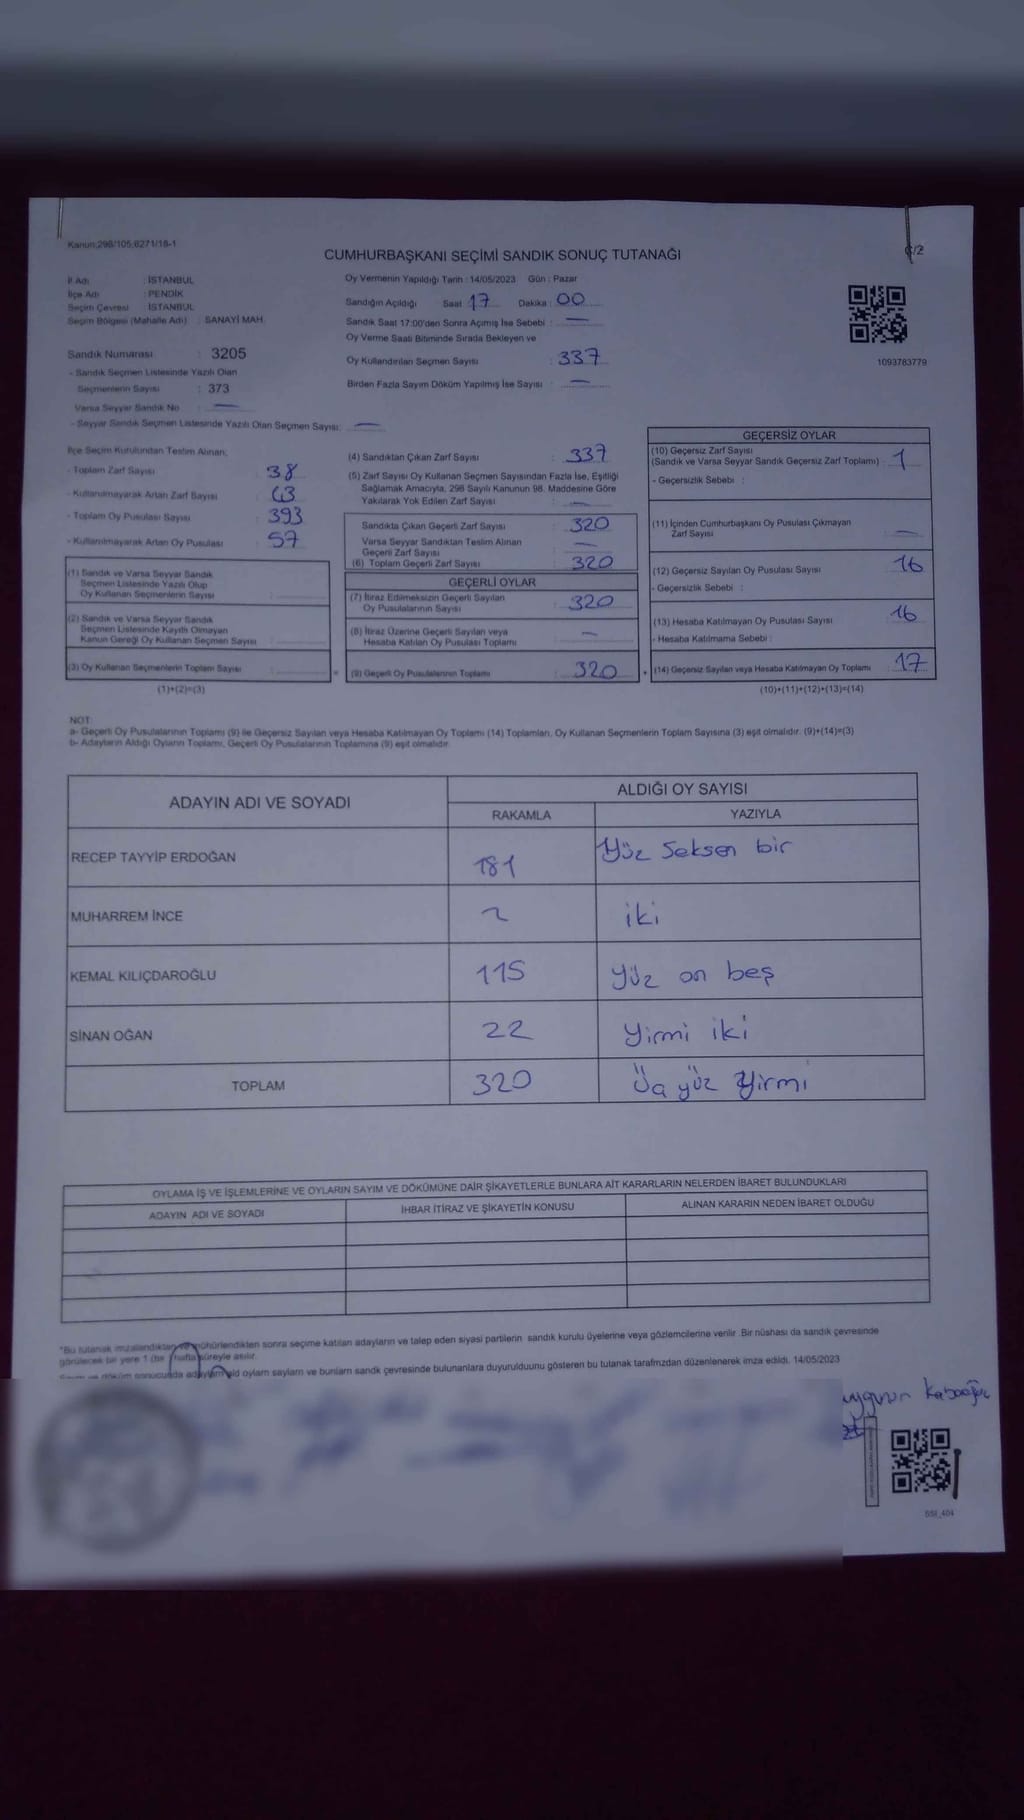 Kanun:298/105;6271/18-1
CUMHURBAŞKANI SEÇİMİ SANDIK SONUÇ TUTANAĞI
C/2
İl Adı : İSTANBUL
İlçe Adı : PENDİK
Seçim Çevresi : İSTANBUL
Seçim Bölgesi (Mahalle Adı) : SANAYİ MAH.
Sandık Numarası : 3205
- Sandık Seçmen Listesinde Yazılı Olan
Seçmenlerin Sayısı : 373
Varsa Seyyar Sandık No : —
- Seyyar Sandık Seçmen Listesinde Yazılı Olan Seçmen Sayısı: —
Oy Vermenin Yapıldığı Tarih : 14/05/2023 Gün : Pazar
Sandığın Açıldığı Saat 17 Dakika : 00
Sandık Saat 17:00'den Sonra Açımış İse Sebebi : —
Oy Verme Saati Bitiminde Sırada Bekleyen ve
Oy Kullandırılan Seçmen Sayısı : 337
Birden Fazla Sayım Döküm Yapılmış İse Sayısı : —
1093783779
İlçe Seçim Kurulundan Teslim Alınan;
- Toplam Zarf Sayısı : 38
- Kullanılmayarak Artan Zarf Sayısı : 63
- Toplam Oy Pusulası Sayısı : 393
- Kullanılmayarak Artan Oy Pusulası : 57
(1) Sandık ve Varsa Seyyar Sandık
Seçmen Listesinde Yazılı Olup
Oy Kullanan Seçmenlerin Sayısı :
(2) Sandık ve Varsa Seyyar Sandık
Seçmen Listesinde Kayıtlı Olmayan
Kanun Gereği Oy Kullanan Seçmen Sayısı :
(3) Oy Kullanan Seçmenlerin Toplam Sayısı
(1)+(2)=(3)
(4) Sandıktan Çıkan Zarf Sayısı : 337
(5) Zarf Sayısı Oy Kullanan Seçmen Sayısından Fazla İse, Eşitliği
Sağlamak Amacıyla, 298 Sayılı Kanunun 98. Maddesine Göre
Yakılarak Yok Edilen Zarf Sayısı : —
Sandıkta Çıkan Geçerli Zarf Sayısı : 320
Varsa Seyyar Sandıktan Teslim Alınan
Geçerli Zarf Sayısı : —
(6) Toplam Geçerli Zarf Sayısı : 320
GEÇERLİ OYLAR
(7) İtiraz Edilmeksizin Geçerli Sayılan
Oy Pusulalarının Sayısı : 320
(8) İtiraz Üzerine Geçerli Sayılan veya
Hesaba Katılan Oy Pusulası Toplamı : —
= (9) Geçerli Oy Pusulalarının Toplamı : 320 +
GEÇERSİZ OYLAR
(10) Geçersiz Zarf Sayısı
(Sandık ve Varsa Seyyar Sandık Geçersiz Zarf Toplamı) : 1
- Geçersizlik Sebebi :
(11) İçinden Cumhurbaşkanı Oy Pusulası Çıkmayan
Zarf Sayısı —
(12) Geçersiz Sayılan Oy Pusulası Sayısı 16
- Geçersizlik Sebebi :
(13) Hesaba Katılmayan Oy Pusulası Sayısı 16
- Hesaba Katılmama Sebebi :
(14) Geçersiz Sayılan veya Hesaba Katılmayan Oy Toplamı : 17
(10)+(11)+(12)+(13)=(14)
NOT:
a- Geçerli Oy Pusulalarının Toplamı (9) ile Geçersiz Sayılan veya Hesaba Katılmayan Oy Toplamı (14) Toplamları, Oy Kullanan Seçmenlerin Toplam Sayısına (3) eşit olmalıdır. (9)+(14)=(3)
b- Adayların Aldığı Oyların Toplamı, Geçerli Oy Pusulalarının Toplamına (9) eşit olmalıdır.
ADAYIN ADI VE SOYADI
ALDIĞI OY SAYISI
RAKAMLA YAZIYLA
RECEP TAYYİP ERDOĞAN 181 Yüz Seksen bir
MUHARREM İNCE 2 iki
KEMAL KILIÇDAROĞLU 115 Yüz on beş
SİNAN OĞAN 22 Yirmi iki
TOPLAM 320 Üç yüz Yirmi
OYLAMA İŞ VE İŞLEMLERİNE VE OYLARIN SAYIM VE DÖKÜMÜNE DAİR ŞİKAYETLERLE BUNLARA AİT KARARLARIN NELERDEN İBARET BULUNDUKLARI
ADAYIN ADI VE SOYADI
İHBAR İTİRAZ VE ŞİKAYETİN KONUSU
ALINAN KARARIN NEDEN İBARET OLDUĞU
*Bu tutanak imzalandıktan ve mühürlendikten sonra seçime katılan adayların ve talep eden siyasi partilerin sandık kurulu üyelerine veya gözlemcilerine verilir. Bir nüshası da sandık çevresinde
görülecek bir yere 1 (bir) hafta süreyle asılır.
Sayım ve döküm sonucunda adayların aldı oyların sayların ve bunların sandk çevresinde bulunanlara duyurulduunu gösteren bu tutanak tarafmzdan düzenlenerek imza edildi. 14/05/2023
SSI_404